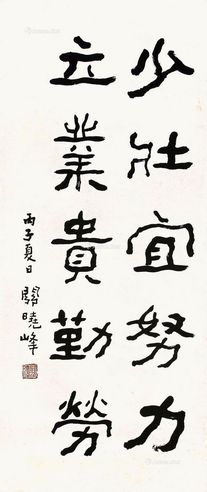 少壯宜努力
立業貴勤勞
丙子夏日 關曉峰